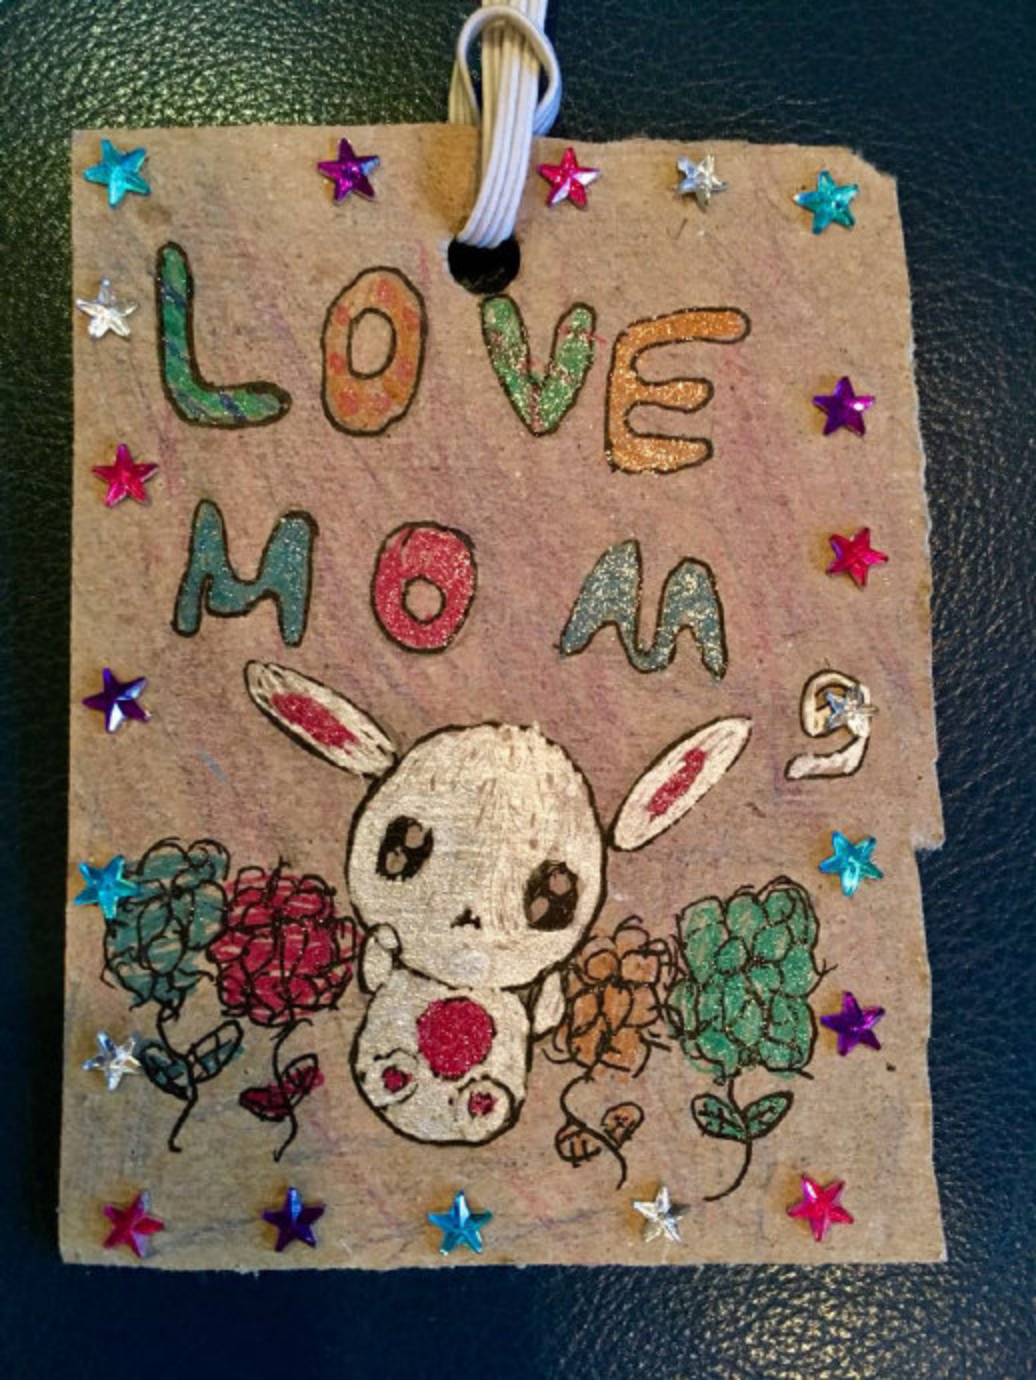 LOVE
MOM
9